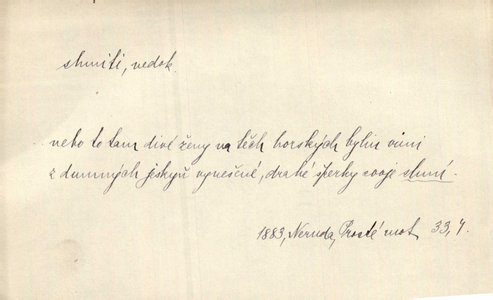 sluniti, nedok.
nebo to tam divé ženy na těch horských bylin vůni
z dumných jeskyň vynešené, drahé šperky svoje sluní.
1883, Neruda, Prosté mot. 33, 4.